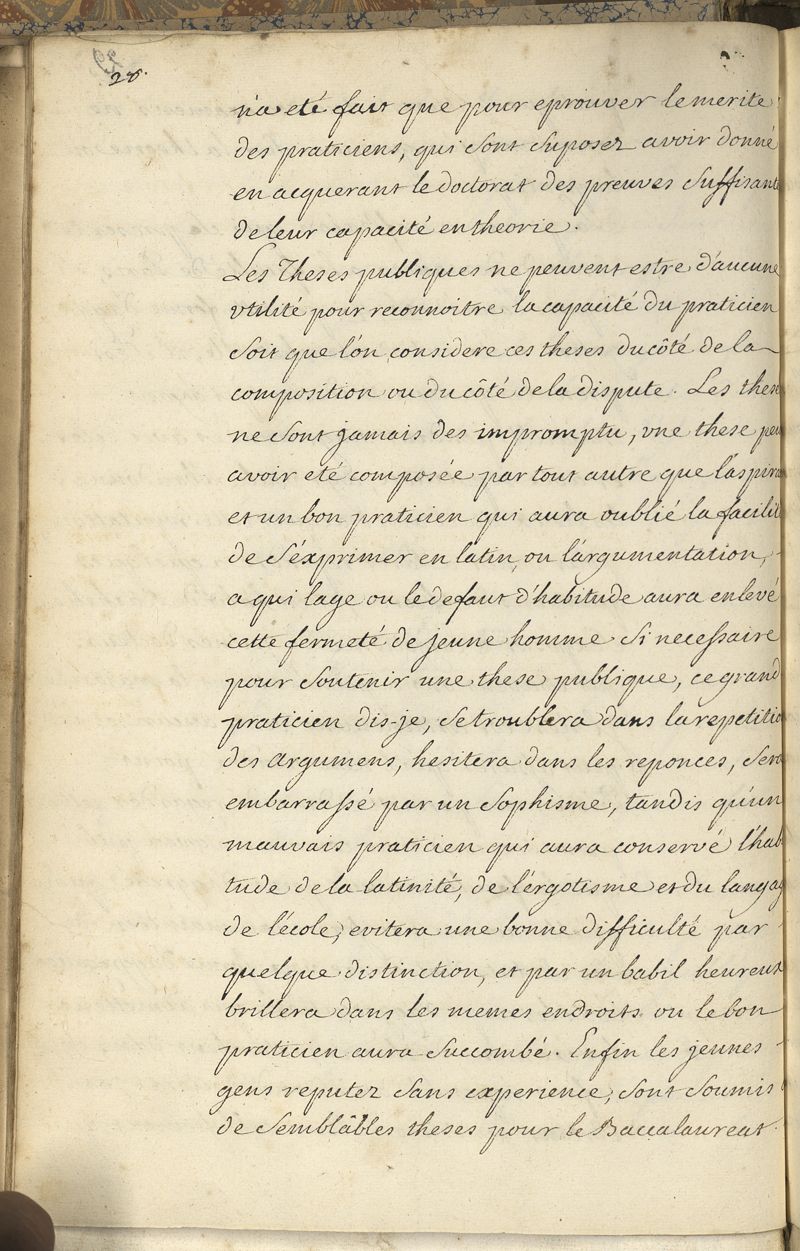 28.
n'a eté fait que pour eprouver le merite
des praticiens, qui sont suposez avoir donné
en acquerant le doctorat des preuves suffisant
de leur capacité en theorie.
Les Theses publiques ne peuvent estre d'aucune
vtilité pour reconnoitre la capacité du praticien
soit que l'on considere ces theses du côté de la
composition ou du côté de la dispute. Les thes
ne sont jamais des impromptu, vne these peu
avoir eté composée par tout autre que l'aspira
et un bon praticien qui aura oublié la facilit
de s'éxprimer en latin, ou l'argumentation,
a qui lage ou le defaut d'habitude aura enlevé
cette fermeté de jeune homme si necessaire
pour soutenir une these publique, ce grand
praticien dis-je, se troublera dans la repetitio
des argumens, hesitera dans les reponces, sera
embarrassé par un sophisme, tandis qu'un
mauvais praticien qui aura conservé l'hab
tude de la latinité, de l'érgotisme et du langag
de l'école, evitera une bonne difficulté par
quelque distinction, et par un babil heureux
brillera dans les memes endroits ou le bon
praticien aura succombé. Enfin les jeunes
gens reputez sans experience, sont soumis
de semblâbles theses pour le Baccalaureat.